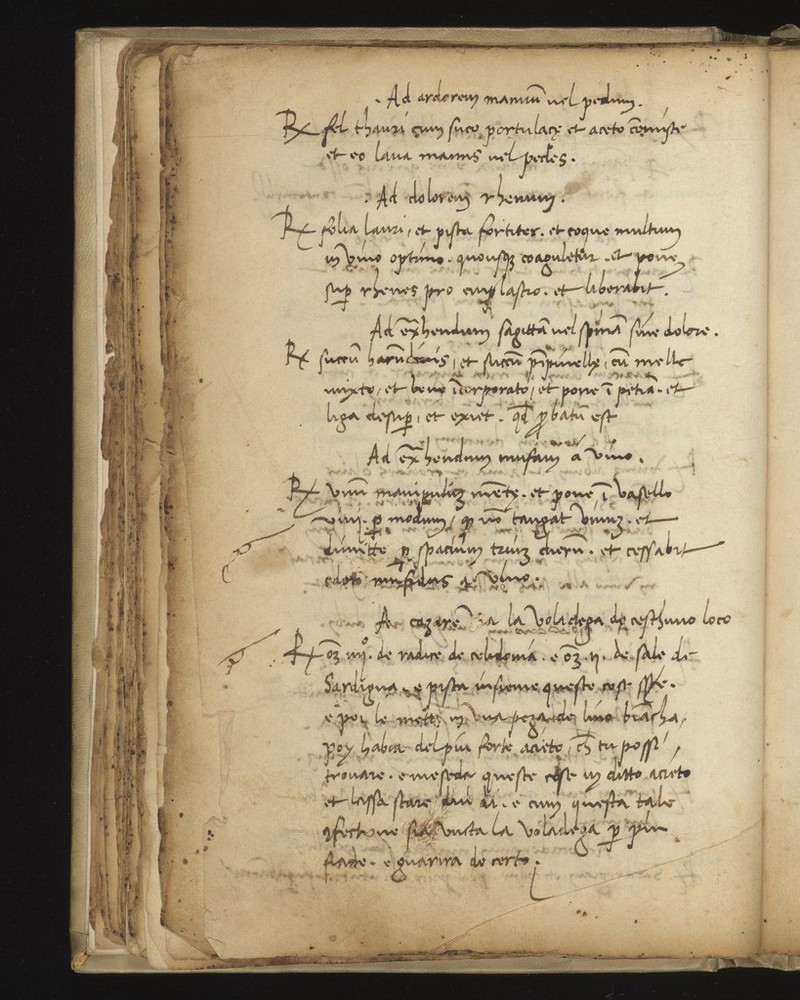 . Ad ardorem manuū vel pedum.
Rx fel thauri cum suco portulacę et aceto cōmiste
et eo lava manus vel pedes.
. Ad dolorem rhenum.
Rx folia lauri, et pista fortiter. et coque multum
in vino optimo. quousqȝ coaguletur. et pone
suꝑ rhenes pro emplastro. et liberabit.
Ad ex̄hendum sagittā vel spinā sine dolore.
Rx succū harūdinis, et succū pīpinellę, cū melle
mixto, et bene īcorporato, et pone ī petiā. et
liga desuꝑ, et exiet. qđ ꝓbatū est
Ad ex̄hendum mufam a vino.
Rx unū manipulū mentę. et pone ī vasello
vini. ꝑ modum, qđ nō tangat vinuȝ. et
dimitte ꝑ spacium triuȝ dierū. et cessabit
odor mufidus a vino.
la Voladega de cesthuno loco
Rx oȝ iiijº. de radice de celidonia. e oȝ. ij. de sale de
Sardigna. e pista insieme queste cose
e poi le mette in una peza de lino biācha,
poy habia del piu forte acieto, ch̄ tu possi
trovare. e meseda queste cose in ditto acieto
et lassa stare dui dì. e cum questa tale
ꝯfectione sia uncta la voladega ꝑ piu
fiade. e guarira de certo.